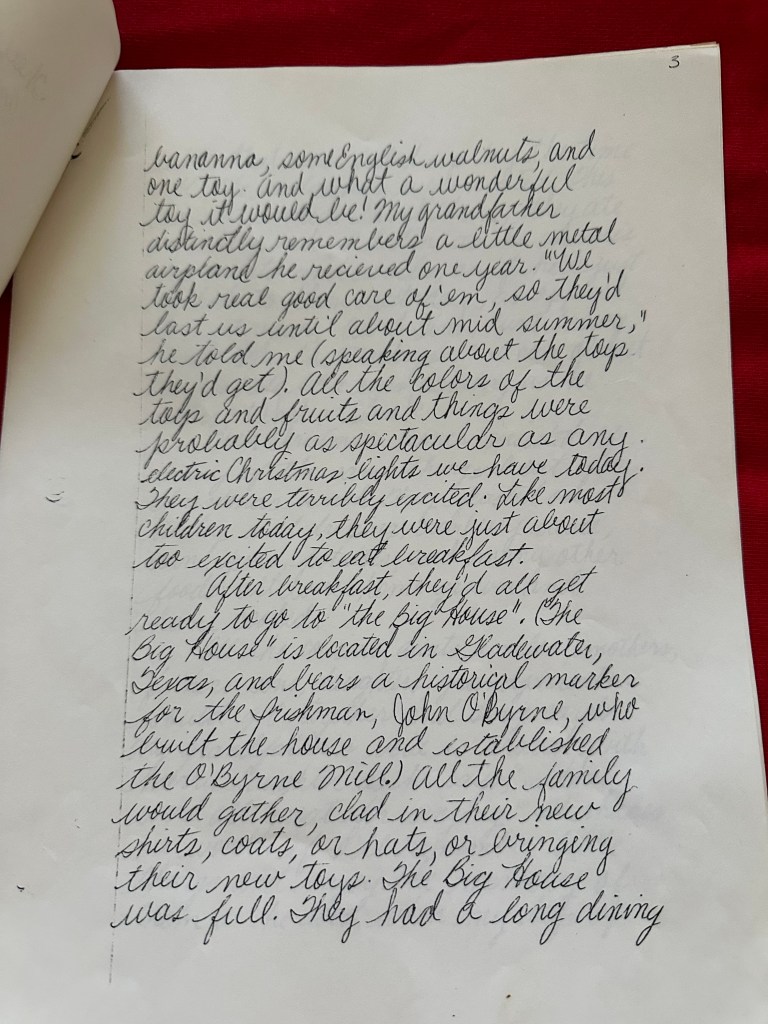 3
bananna, some English walnuts, and
one toy. And what a wonderful
toy it would be! My grandfather
distinctly remembers a little metal
airplane he recieved one year. "We
took real good care of 'em, so they'd
last us until about mid summer,"
he told me (speaking about the toys
they'd get). All the colors of the
toys and fruits and things were
probably as spectacular as any
electric Christmas lights we have today.
They were terribly excited. Like most
children today, they were just about
too excited to eat breakfast.
After breakfast, they'd all get
ready to go to "the Big House". (The
Big House" is located in Gladewater,
Texas, and bears a historical marker
for the Irishman, John O'Byrne, who
built the house and established
the O'Byrne Mill.) All the family
would gather, clad in their new
shirts, coats, or hats, or bringing
their new toys. The Big House
was full. They had a long dining